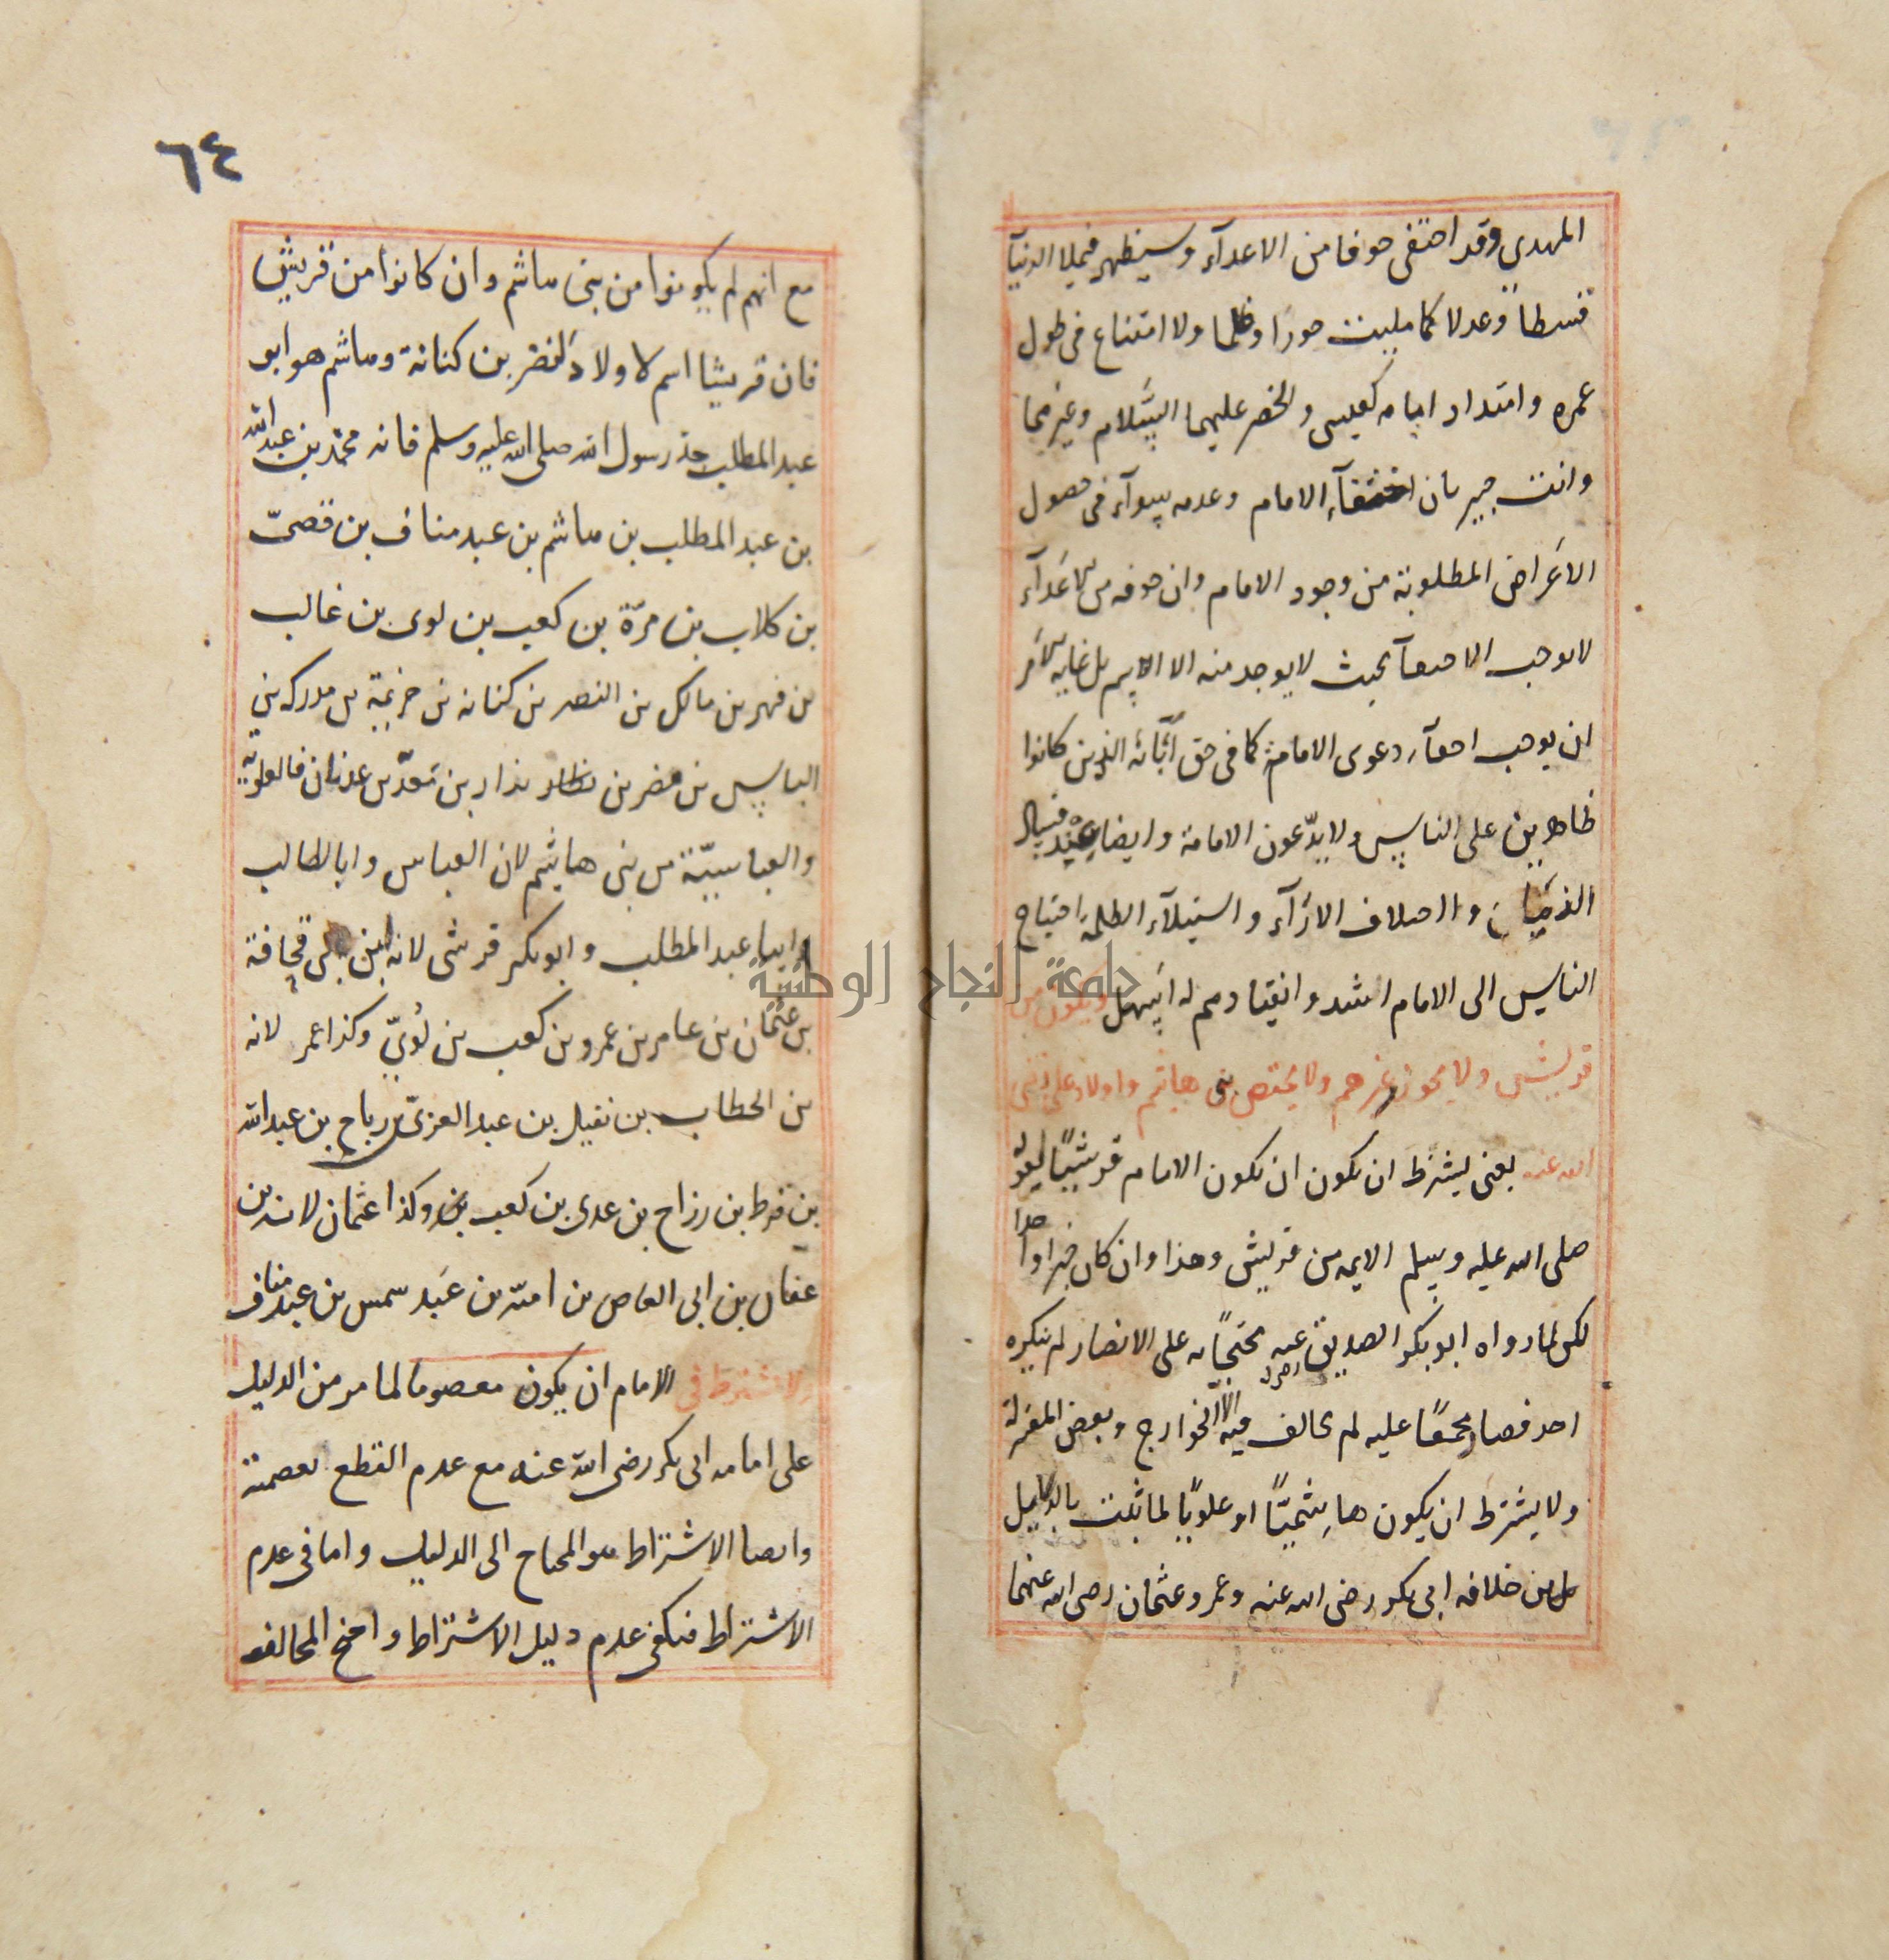 المهدى وقد اختفى خوفا من الاعدآء وسيظهر فيملا الدنيآ
قسطا وعدلا كما مليت جورا وظلما ولا امتناع فى طول
عمره وامتداد ايامه كعيسى والخضر عليهما السلام وغيرهما
وانت خبير بان اختفآء الامام وعدمه سوآء فى حصول
الاغراض المطلوبة من وجود الامام وان خوفه من الاعدآء
لا يوجب الاختفآ بحيث لا يوجد منه الا الاسم بل غاية الامر
ان يوجب اخفآء دعوى الامامة كما فى حق آبائه الذين كانوا
ظاهرين على الناس ولا يدّعون الامامة وايضا عند فساد
الزمان واختلاف الارآء واستيلآء الظلمة احتياج
الناس الى الامام اشد وانقيادهم له اسهل ويكون من
قريش ولا يجوز غيرهم ولا يختص بنى هاشم واولاد على رضى
الله عنه يعنى يشترط ان يكون ان يكون الامام قرشيًا لقوله
صلى الله عليه وسلم الايمه من قريش وهذا وان كان خبرا واحدا
لكن لما رواه ابو بكر الصديق محتجًا به على الانصار لم ينكره
احد فصار مجمعًا عليه لم يخالف فيه الا الخوارج وبعض المعتزلة
ولا يشترط ان يكون هاشميًّا او علويًا لما ثبت بالدلايل
من خلافه ابى بكر رضى الله عنه وعمر وعثمان رضى الله عنهما
٦٤
مع انهم لم يكونوا من بنى هاشم وان كانوا من قريش
فان قريشا اسم لاولاد النضر بن كنانة وهاشم هو ابو
عبد المطلب جد رسول الله صلى الله عليه وسلم فانه محمد بن عبد الله
بن عبد المطلب بن هاشم بن عبد مناف بن قصىّ
بن كلاب بن مرّة بن كعب بن لوى بن غالب
بن فهر بن مالك بن النضر بن كنانه بن خزيمة بن مدركه بن
الياس بن مضر بن نزار بن معدّ بن عدنان فالعلويه
والعباسيّة من بنى هاشم لان العباس وابا طالب
ابنا عبد المطلب وابو بكر قرشى لانه ابن ابى قحافة
بن عثمان بن عامر بن عمرو بن كعب بن لُوىّ وكذا عمر لانه
بن الخطاب بن نفيل بن عبد العزىّ بن رباح بن عبد الله
بن قرط بن رزاح بن عدى بن كعب وكذا عثمان لانه بن
عفان بن ابى العاص بن اميّه بن عبد شمس بن عبد مناف
ولا يشترط فى الامام ان يكون معصوما لما مر من الدليل
على امامه ابى بكر رضى الله عنه مع عدم القطع بعصمته
وايضا الاشتراط هو المحتاج الى الدليل واما فى عدم
الاشتراط فيكفى عدم دليل الاشتراط واحتج المخالف
جامعة النجاح الوطنية